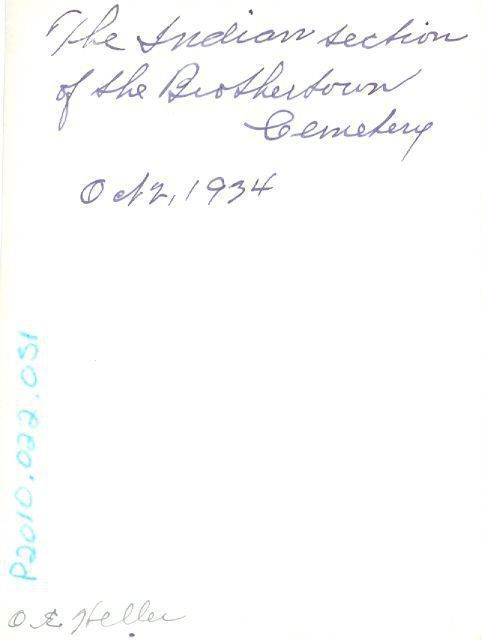 The Indian section
of the Brothertown
Cemetery
Oct 2, 1934
P2010.022.051
O. E. Heller